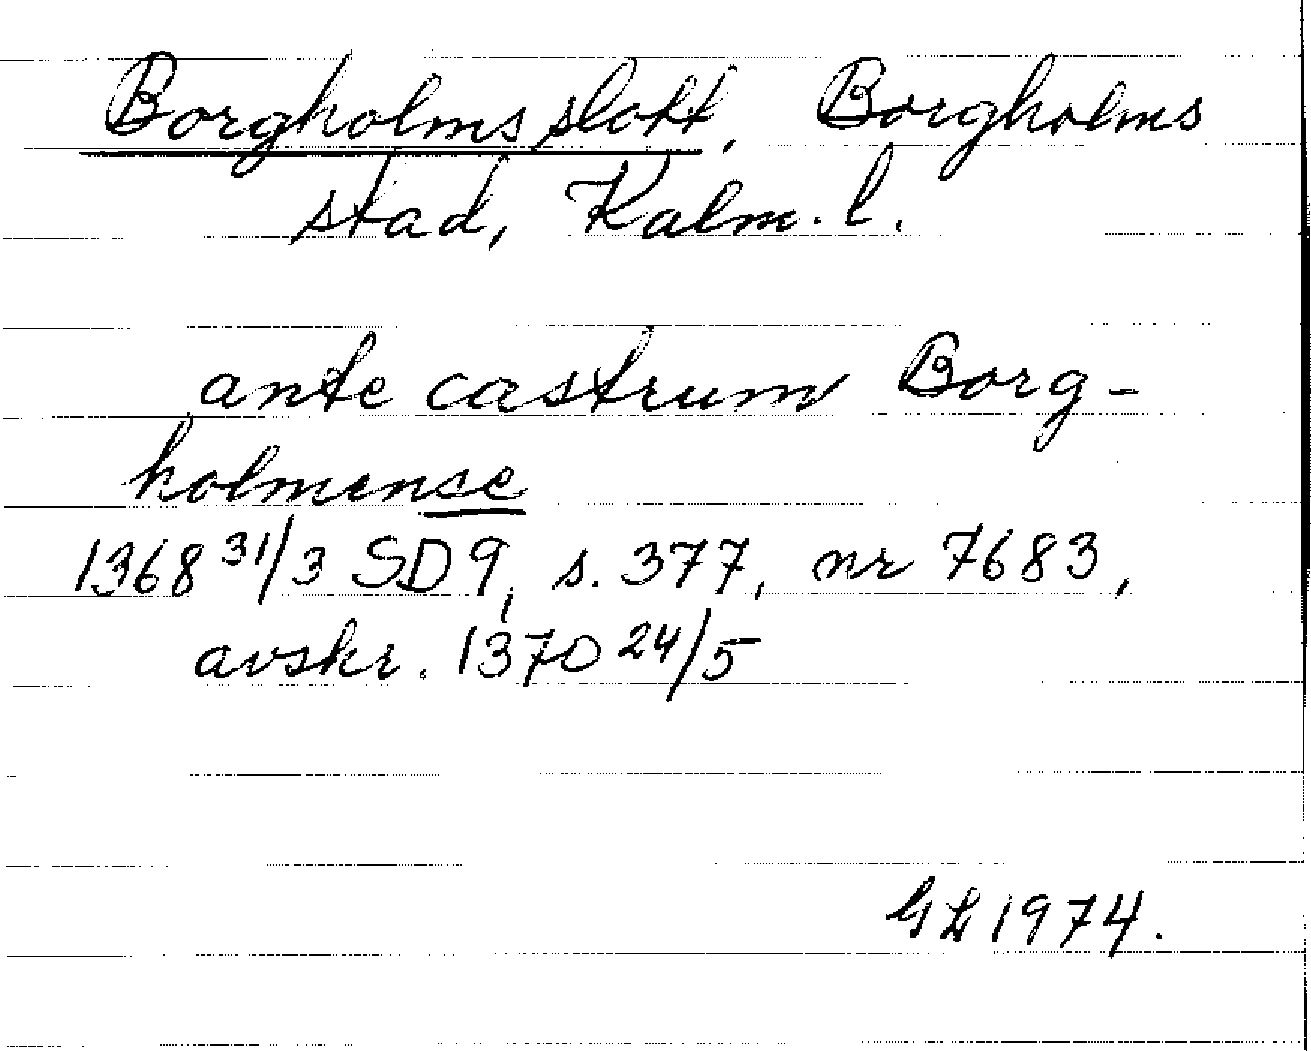 Borgholms slott, Borgholms
stad, Kalm. l.
ante castrum Borg-
holmense
1368 31/3 SD 9, s. 377, nr 7683,
avskr. 1370 24/5
GL 1974.